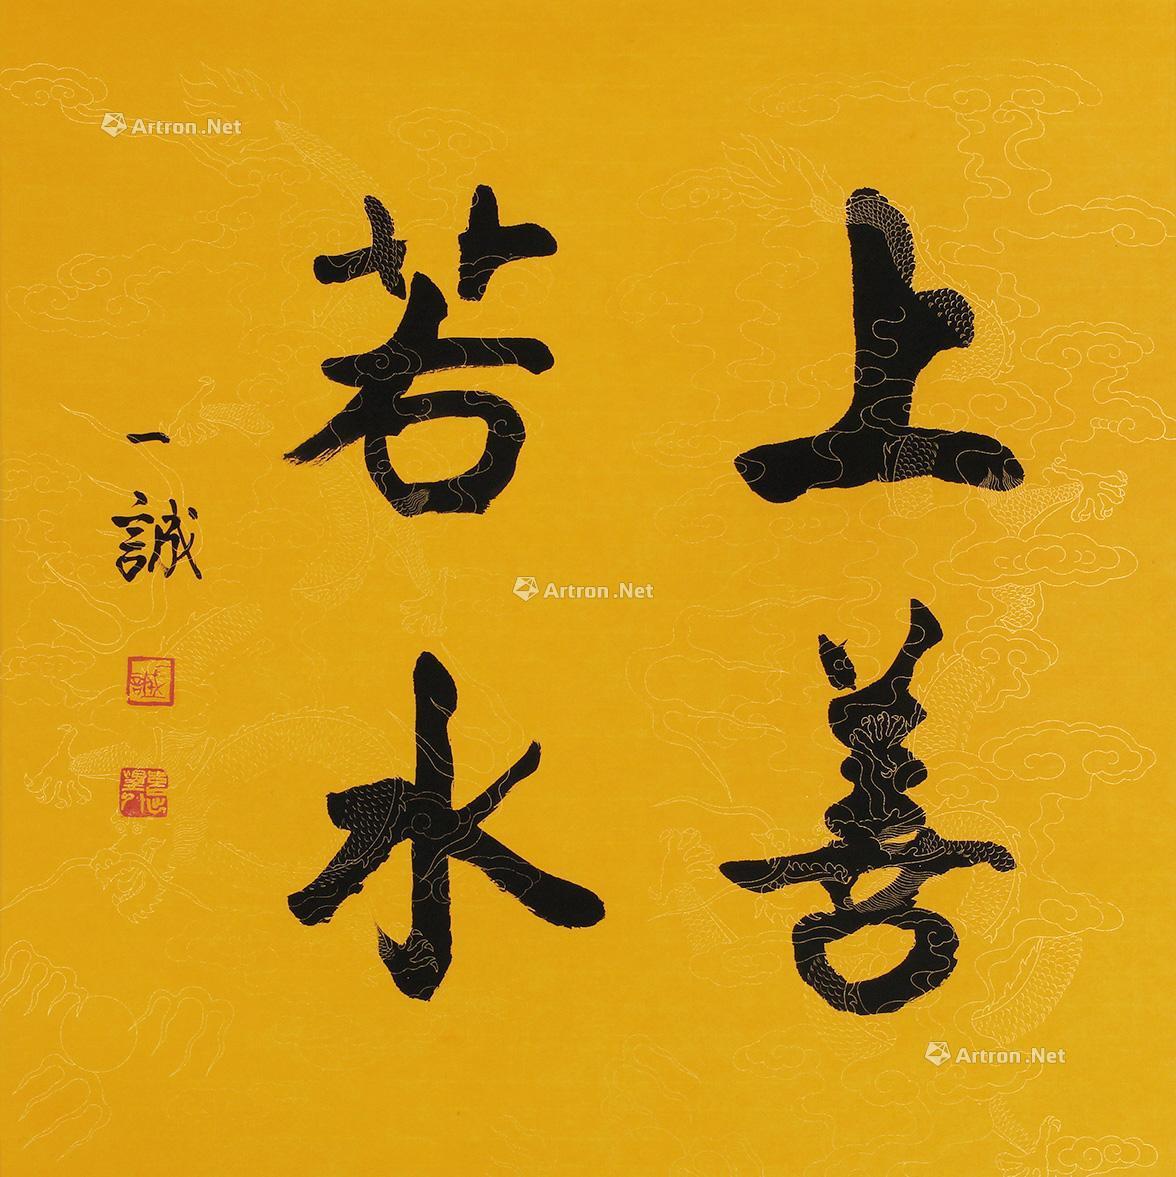 上善
若水
一誠
Artron.Net
Artron.Net
Artron.Net